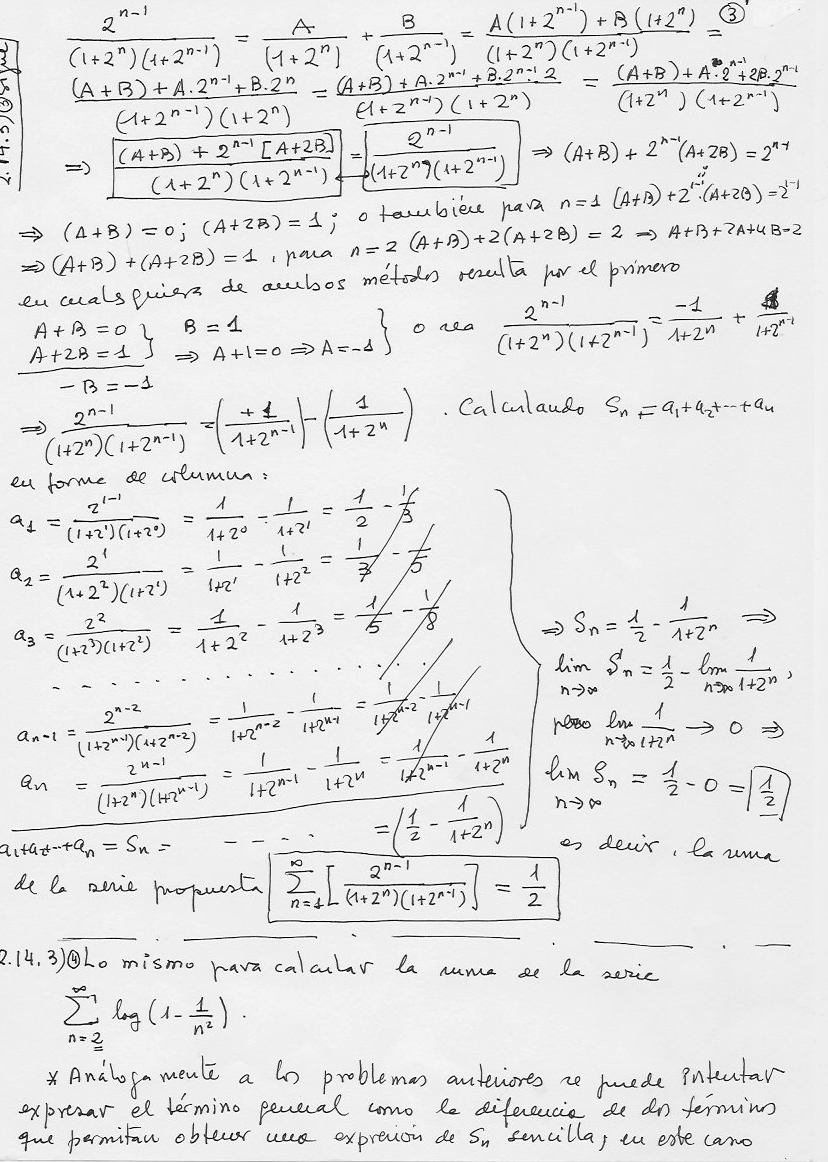 2^{n-1}/((1+2^n)(1+2^{n-1})) = A/(1+2^n) + B/(1+2^{n-1}) = (A(1+2^{n-1})+B(1+2^n))/((1+2^n)(1+2^{n-1})) = ③
((A+B)+A·2^{n-1}+B·2^n)/((1+2^{n-1})(1+2^n)) = ((A+B)+A·2^{n-1}+B·2^{n-1}·2)/((1+2^{n-1})(1+2^n)) = ((A+B)+A·2^{n-1}+2B·2^{n-1})/((1+2^n)(1+2^{n-1}))
⇒ ((A+B)+2^{n-1}[A+2B])/((1+2^n)(1+2^{n-1})) = 2^{n-1}/((1+2^n)(1+2^{n-1})) ⇒ (A+B)+2^{n-1}(A+2B)=2^{n-1}
⇒ (A+B)=0; (A+2B)=1; o también para n=1 (A+B)+2^{1-1}·(A+2B)=2^{1-1}
⇒ (A+B)+(A+2B)=1, para n=2 (A+B)+2(A+2B)=2 ⇒ A+B+2A+4B=2
en cualsquiera de ambos métodos resulta por el primero
A+B=0 } B=1 } o sea 2^{n-1}/((1+2^n)(1+2^{n-1})) = -1/(1+2^n) + 1/(1+2^{n-1})
A+2B=1 } ⇒ A+1=0 ⇒ A=-1
-B=-1
⇒ 2^{n-1}/((1+2^n)(1+2^{n-1})) = (+1/(1+2^{n-1})) - (1/(1+2^n)). Calculando S_n = a_1+a_2+···+a_n
en forma de columna:
a_1 = 2^{1-1}/((1+2^1)(1+2^0)) = 1/(1+2^0) - 1/(1+2^1) = 1/2 - 1/3
a_2 = 2^1/((1+2^2)(1+2^1)) = 1/(1+2^1) - 1/(1+2^2) = 1/3 - 1/5
a_3 = 2^2/((1+2^3)(1+2^2)) = 1/(1+2^2) - 1/(1+2^3) = 1/5 - 1/8
- - - - - - - - - - - -
a_{n-1} = 2^{n-2}/((1+2^{n-1})(1+2^{n-2})) = 1/(1+2^{n-2}) - 1/(1+2^{n-1}) = 1/(1+2^{n-2}) - 1/(1+2^{n-1})
a_n = 2^{n-1}/((1+2^n)(1+2^{n-1})) = 1/(1+2^{n-1}) - 1/(1+2^n) = 1/(1+2^{n-1}) - 1/(1+2^n)
a_1+a_2+···+a_n = S_n = - - - - = (1/2 - 1/(1+2^n))
⇒ S_n = 1/2 - 1/(1+2^n) ⇒
lim n→∞ S_n = 1/2 - lim n→∞ 1/(1+2^n),
pero lim n→∞ 1/(1+2^n) → 0 ⇒
lim n→∞ S_n = 1/2 - 0 = 1/2
es decir, la suma
de la serie propuesta ∑_{n=1}^∞ [2^{n-1}/((1+2^n)(1+2^{n-1}))] = 1/2
2.14.3)④ Lo mismo para calcular la suma de la serie
∑_{n=2}^∞ log(1 - 1/n²).
* Análogamente a los problemas anteriores se puede intentar
expresar el término general como la diferencia de dos términos
que permitan obtener una expresión de S_n sencilla, en este caso